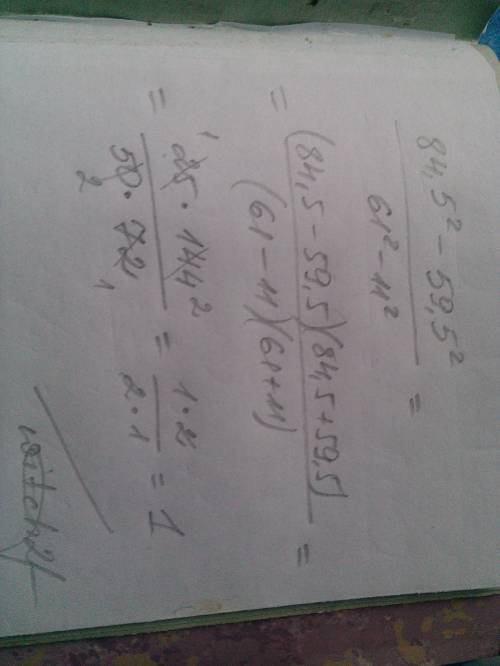 84,5² - 59,5² / 61² - 11² =
= (84,5 - 59,5)(84,5 + 59,5) / (61 - 11)(61 + 11) =
= 25 · 144 / 50 · 72 = 1 · 2 / 2 · 1 = 1